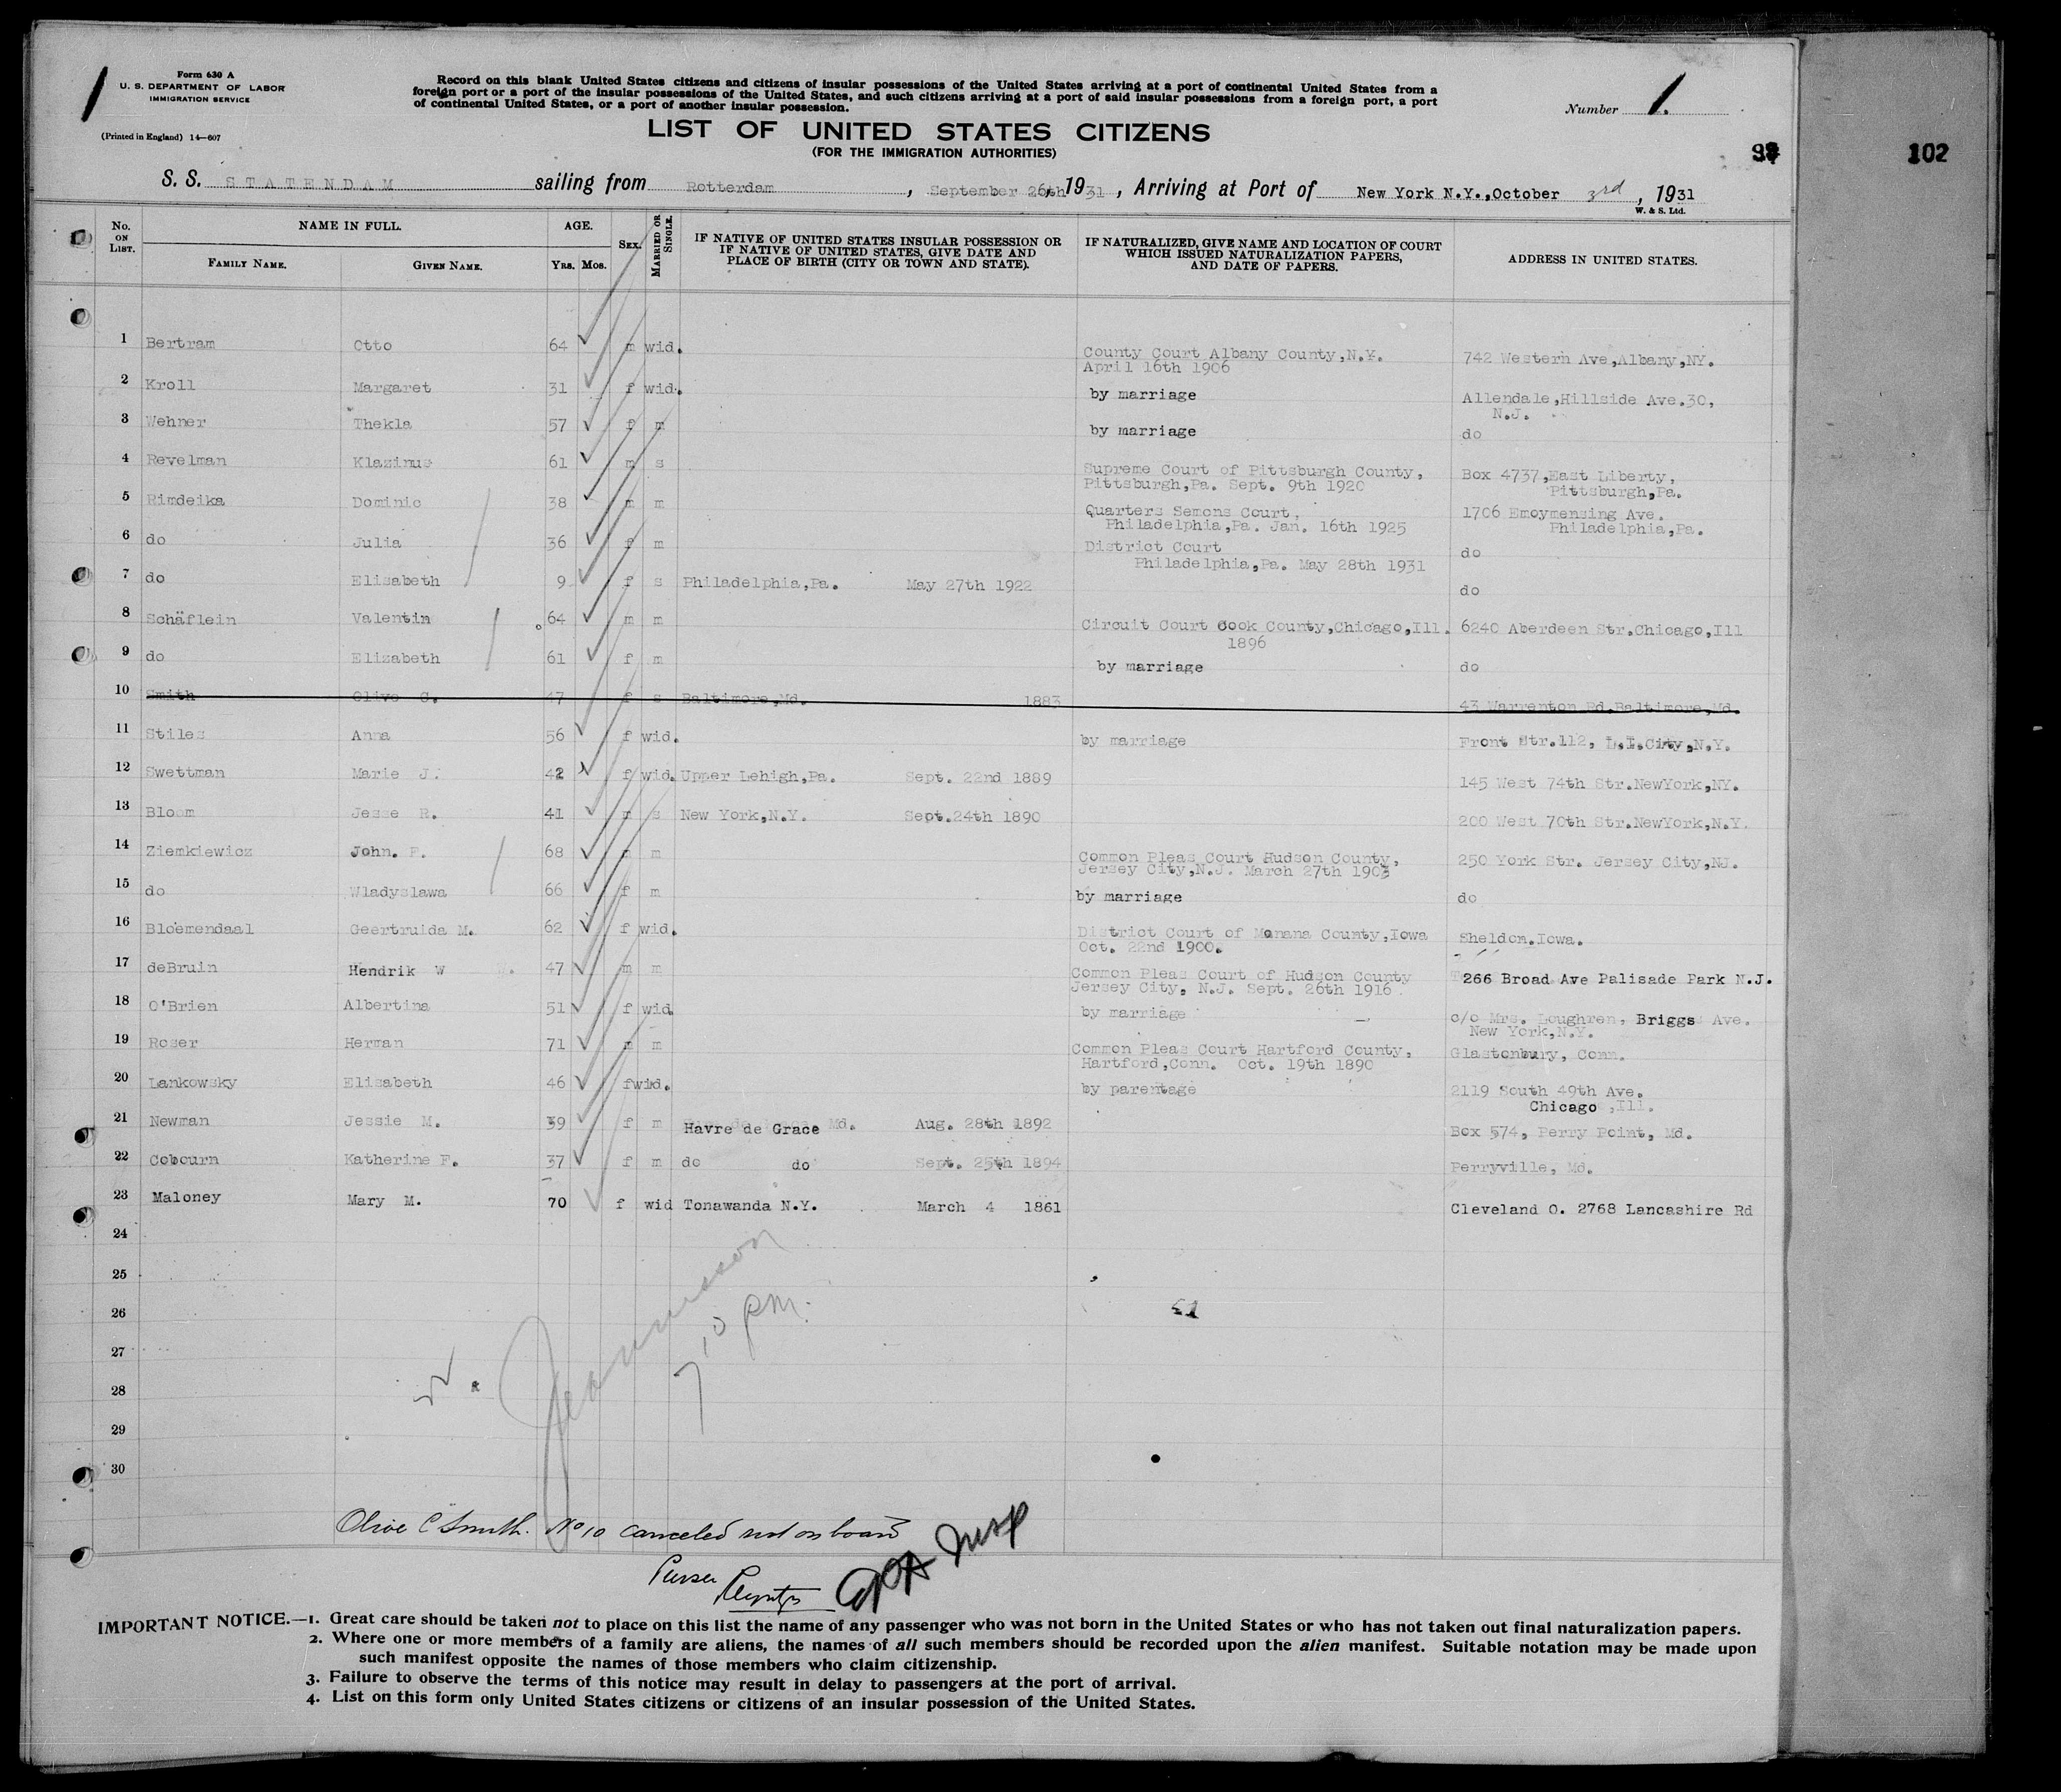 Form 630 A
U. S. DEPARTMENT OF LABOR
IMMIGRATION SERVICE
(Printed in England) 14—607
1
Record on this blank United States citizens and citizens of insular possessions of the United States arriving at a port of continental United States from a
foreign port or a port of the insular possessions of the United States, and such citizens arriving at a port of said insular possessions from a foreign port, a port
of continental United States, or a port of another insular possession.
Number 1.
LIST OF UNITED STATES CITIZENS
(FOR THE IMMIGRATION AUTHORITIES)
102
S. S. STATENDAM sailing from Rotterdam, September 26th, 1931, Arriving at Port of New York N.Y., October 3rd, 1931
W. & S. Ltd.
No. ON LIST. NAME IN FULL. FAMILY NAME. GIVEN NAME. AGE. YRS. MOS. SEX. MARRIED OR SINGLE. IF NATIVE OF UNITED STATES INSULAR POSSESSION OR IF NATIVE OF UNITED STATES, GIVE DATE AND PLACE OF BIRTH (CITY OR TOWN AND STATE). IF NATURALIZED, GIVE NAME AND LOCATION OF COURT WHICH ISSUED NATURALIZATION PAPERS, AND DATE OF PAPERS. ADDRESS IN UNITED STATES.
1 Bertram Otto 64 m wid. County Court Albany County,N.Y. April 16th 1906 742 Western Ave,Albany,NY.
2 Kroll Margaret 31 f wid. by marriage Allendale,Hillside Ave.30, N.J.
3 Wehner Thekla 57 f m by marriage do
4 Revelman Klasinus 61 m s Supreme Court of Pittsburgh County, Pittsburgh,Pa. Sept. 9th 1920 Box 4737,East Liberty, Pittsburgh,Pa.
5 Rimdeika Dominic 38 m m Quarters Semons Court, Philadelphia,Pa. Jan. 16th 1925 1706 Emoymensing Ave. Philadelphia,Pa.
6 do Julia 36 f m District Court Philadelphia,Pa. May 28th 1931 do
7 do Elisabeth 9 f s Philadelphia,Pa. May 27th 1922 do
8 Schäflein Valentin 64 m m Circuit Court Cook County,Chicago,Ill. 1896 6240 Aberdeen Str.Chicago,Ill
9 do Elizabeth 61 f m by marriage do
10 Smith Olive C. 47 f s Baltimore,Md. 1883 43 Warrenton Rd.Baltimore,Md.
11 Stiles Anna 56 f wid. by marriage Front Str.112, L.I.City,N.Y.
12 Swettman Marie J. 42 f wid. Upper Lehigh,Pa. Sept. 22nd 1889 145 West 74th Str.NewYork,NY.
13 Bloom Jesse R. 41 m s New York,N.Y. Sept.24th 1890 200 West 70th Str.NewYork,N.Y.
14 Ziemkiewicz John. F. 68 m m Common Pleas Court Hudson County, Jersey City,N.J. March 27th 1903 250 York Str. Jersey City,NJ.
15 do Wladyslawa 66 f m by marriage do
16 Bloemendaal Geertruida M. 62 f wid. District Court of Monana County,Iowa Oct. 22nd 1900. Sheldon.Iowa.
17 deBruin Hendrik W 47 m m Common Pleas Court of Hudson County Jersey City, N.J. Sept. 26th 1916 266 Broad Ave Palisade Park N.J.
18 O'Brien Albertina 51 f wid. by marriage c/o Mrs. Loughren, Briggs Ave. New York,N.Y.
19 Roser Herman 71 m m Common Pleas Court Hartford County, Hartford,Conn. Oct. 19th 1890 Glastonbury, Conn.
20 Lankowsky Elisabeth 46 f wid. by parentage 2119 South 49th Ave. Chicago ,Ill.
21 Newman Jessie M. 39 f m Havre de Grace Md. Aug. 28th 1892 Box 574, Perry Point, Md.
22 Cobourn Katherine F. 37 f m do do Sept. 25th 1894 Perryville, Md.
23 Maloney Mary M. 70 f wid Tonawanda N.Y. March 4 1861 Cleveland O. 2768 Lancashire Rd
24
25
26
27
28
29
30
7 10 pm.
Olive C Smith. No 10 canceled not on board
Purser
Insp
IMPORTANT NOTICE.—1. Great care should be taken not to place on this list the name of any passenger who was not born in the United States or who has not taken out final naturalization papers.
2. Where one or more members of a family are aliens, the names of all such members should be recorded upon the alien manifest. Suitable notation may be made upon
such manifest opposite the names of those members who claim citizenship.
3. Failure to observe the terms of this notice may result in delay to passengers at the port of arrival.
4. List on this form only United States citizens or citizens of an insular possession of the United States.